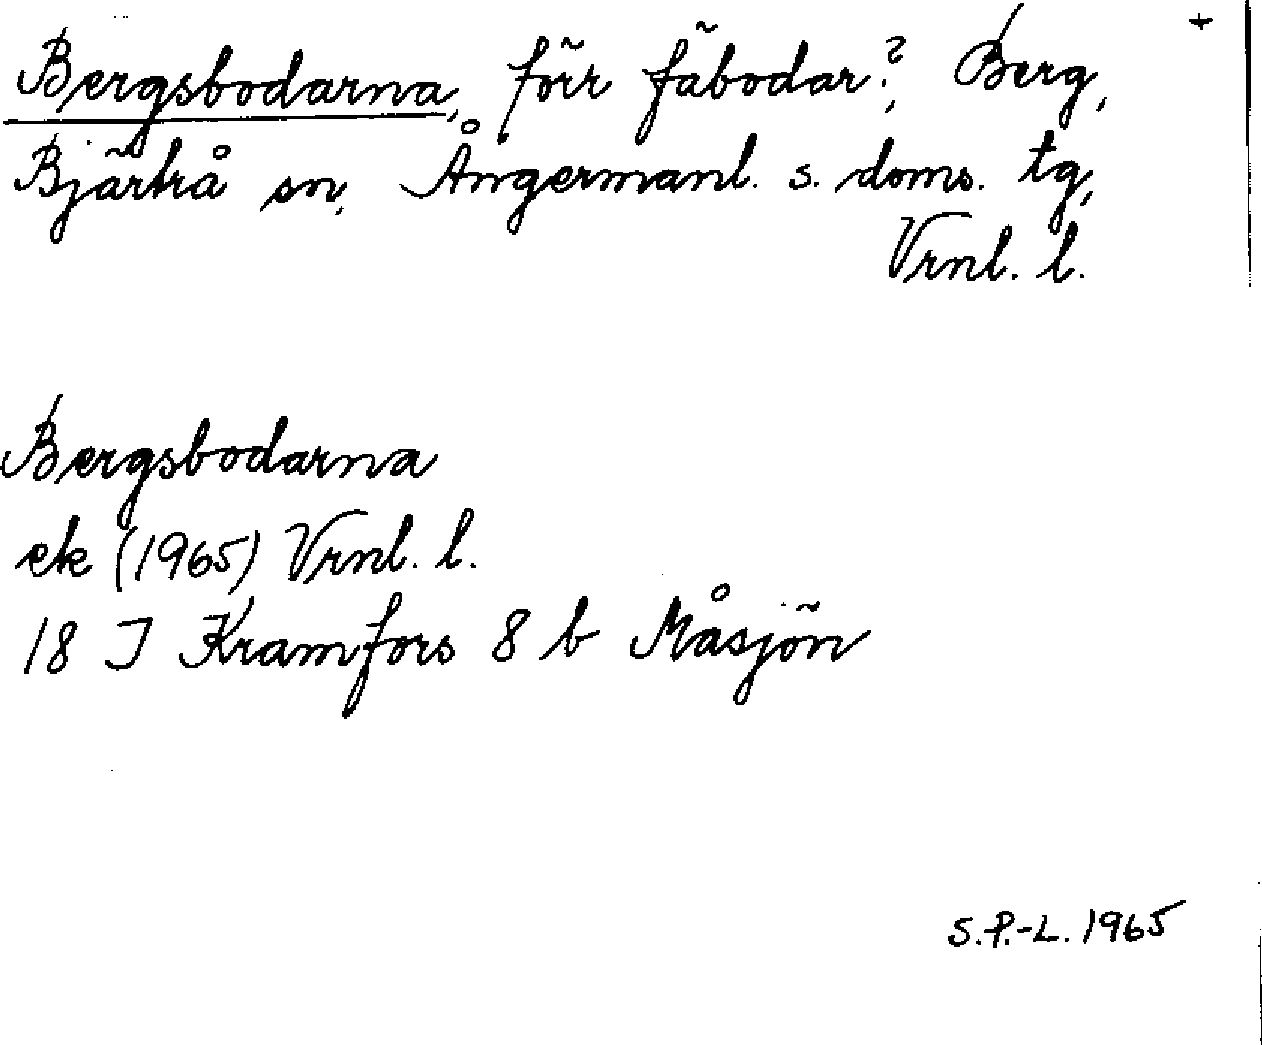 +
Bergsbodarna, förr fäbodar?, Berg,
Bjärtrå sn, Ångermanl. s. doms. tg,
Vrnl. l.
Bergsbodarna
ek (1965) Vrnl. l.
18 I Kramfors 8 b Måsjön
S.P.-L. 1965